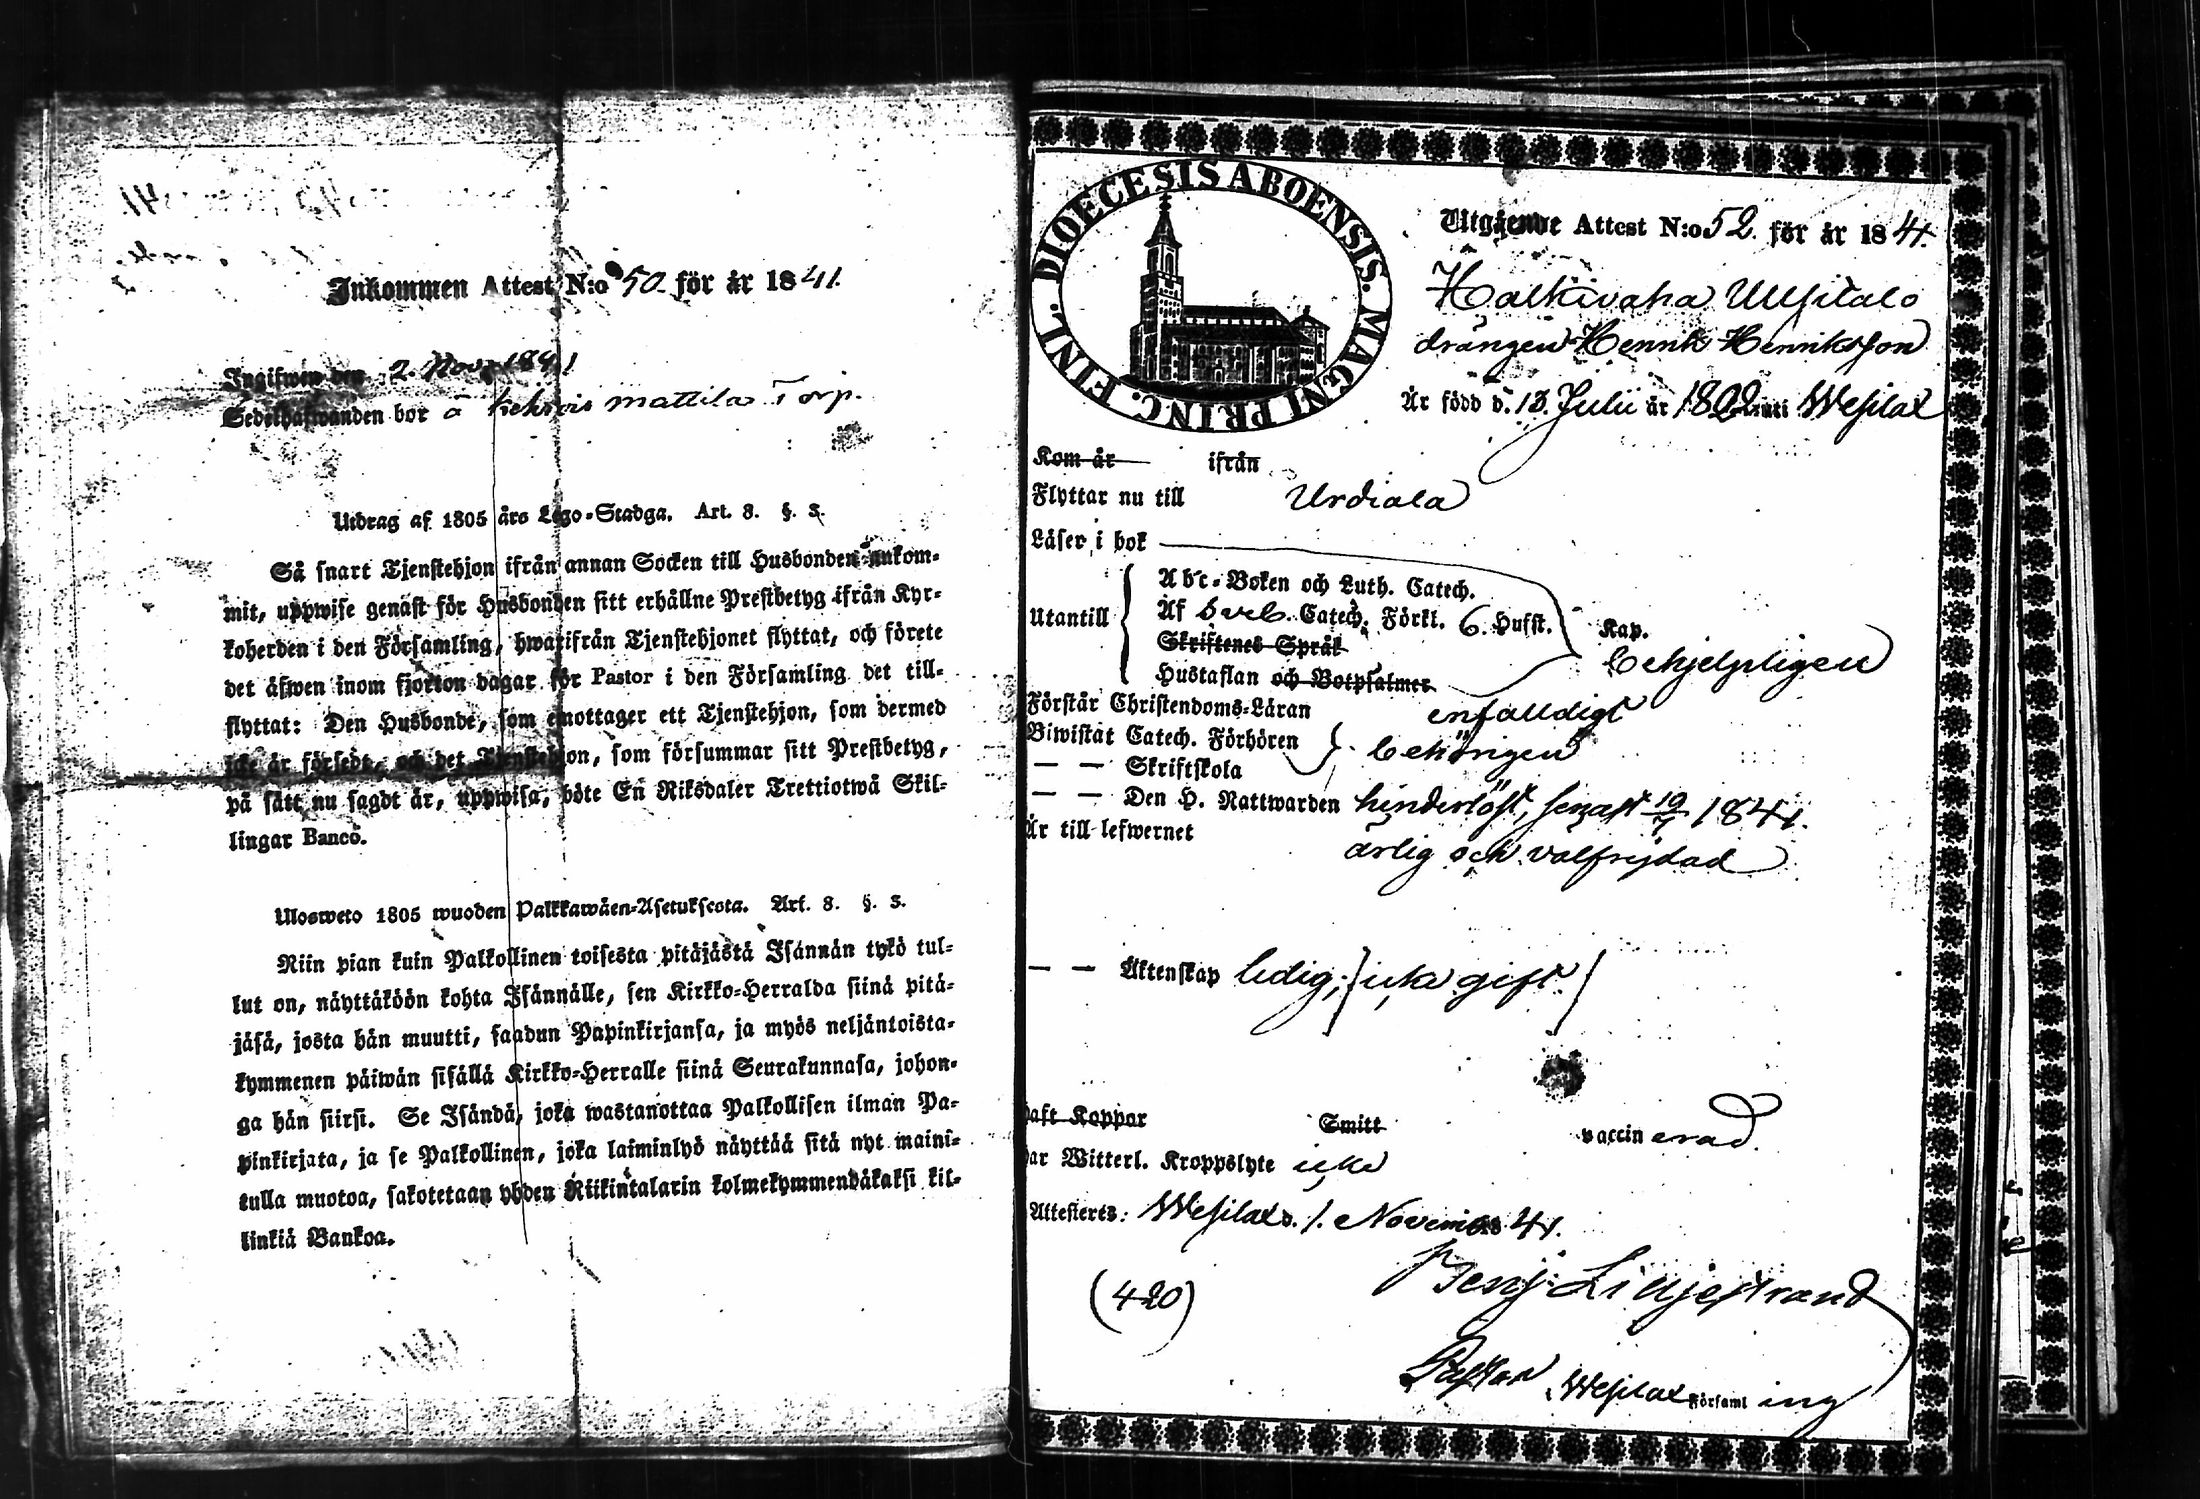 Inkommen Attest N:o 50. för år 1841.
Ingifwen den 2. Nov. 1841
Sedelhafwanden bor å Kehrois Mattila Torp.
Utdrag af 1805 års Lego-Stadga. Art. 8. §. 3.
Så snart Tjenstehjon ifrån annan Socken till Husbonden ankom-
mit, uppwise genast för Husbonden sitt erhållne Prestbetyg ifrån Kyr-
koherden i den Församling, hwarifrån Tjenstehjonet flyttat, och förete
det äfwen inom fjorton dagar för Pastor i den Församling det till-
flyttat: Den Husbonde, som emottager ett Tjenstehjon, som dermed
icke är försedt, och det Tjenstehjon, som försummar sitt Prestbetyg,
på sätt nu sagdt är, uppwisa, böte En Riksdaler Trettiotwå Skil-
lingar Banco.
Ulosweto 1805 wuoden Palkkawäen-Asetuksesta. Art. 8. §. 3.
Niin pian kuin Palkollinen toisesta pitäjästä Isännän tykö tul-
lut on, näyttäköön kohta Isännälle, sen Kirkko-Herralda siinä pitä-
jäsä, josta hän muutti, saadun Papinkirjansa, ja myös neljäntoista-
kymmenen päiwän sisällä Kirkko-Herralle siinä Seurakunnasa, johon-
ga hän siirsi. Se Isändä, joka wastanottaa Palkollisen ilman Pa-
pinkirjata, ja se Palkollinen, joka laiminlyö näyttää sitä nyt maini-
tulla muotoa, sakotetaan yhden Riikintalarin kolmekymmendäkaksi kil-
linkiä Bankoa.
DIOECESIS ABOENSIS. MAGNI PRINC. FINL.
Utgående Attest N:o 52. för år 1841.
Halkivaha Ullsitalo
drängen Henrik Henriksson
Är född d. 13. Julii år 1802 uti Wesilax
Kom år ifrån
Flyttar nu till Urdiala
Läser i bok
Utantill
Abc-Boken och Luth. Catech.
Af Sveb. Catech. Förkl. 6. Hufst. Kap.
Skriftenes Språk
behjelpligen
Hustaflan och Botpsalmer
Förstår Christendoms-Läran enfaldigt
Biwistat Catech. Förhören behörigen
— — Skriftskola
— — Den H. Nattwarden hinderlöst, senast 19/7 1841.
Är till lefwernet ärlig och välfrejdad
— — Äktenskap ledig, (icke gift.)
Haft Koppor Smitt vaccinerad.
Har Witterl. Kroppslyte icke
Attesteres: Wesilax d. 1. November 41.
Benj. Liljestrand
(420)
Pastor i Wesilax Församling